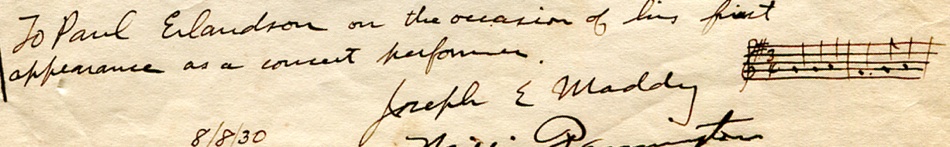 To Paul Erlandson on the occasion of his first
appearance as a concert performer.
Joseph E Maddy
8/8/30